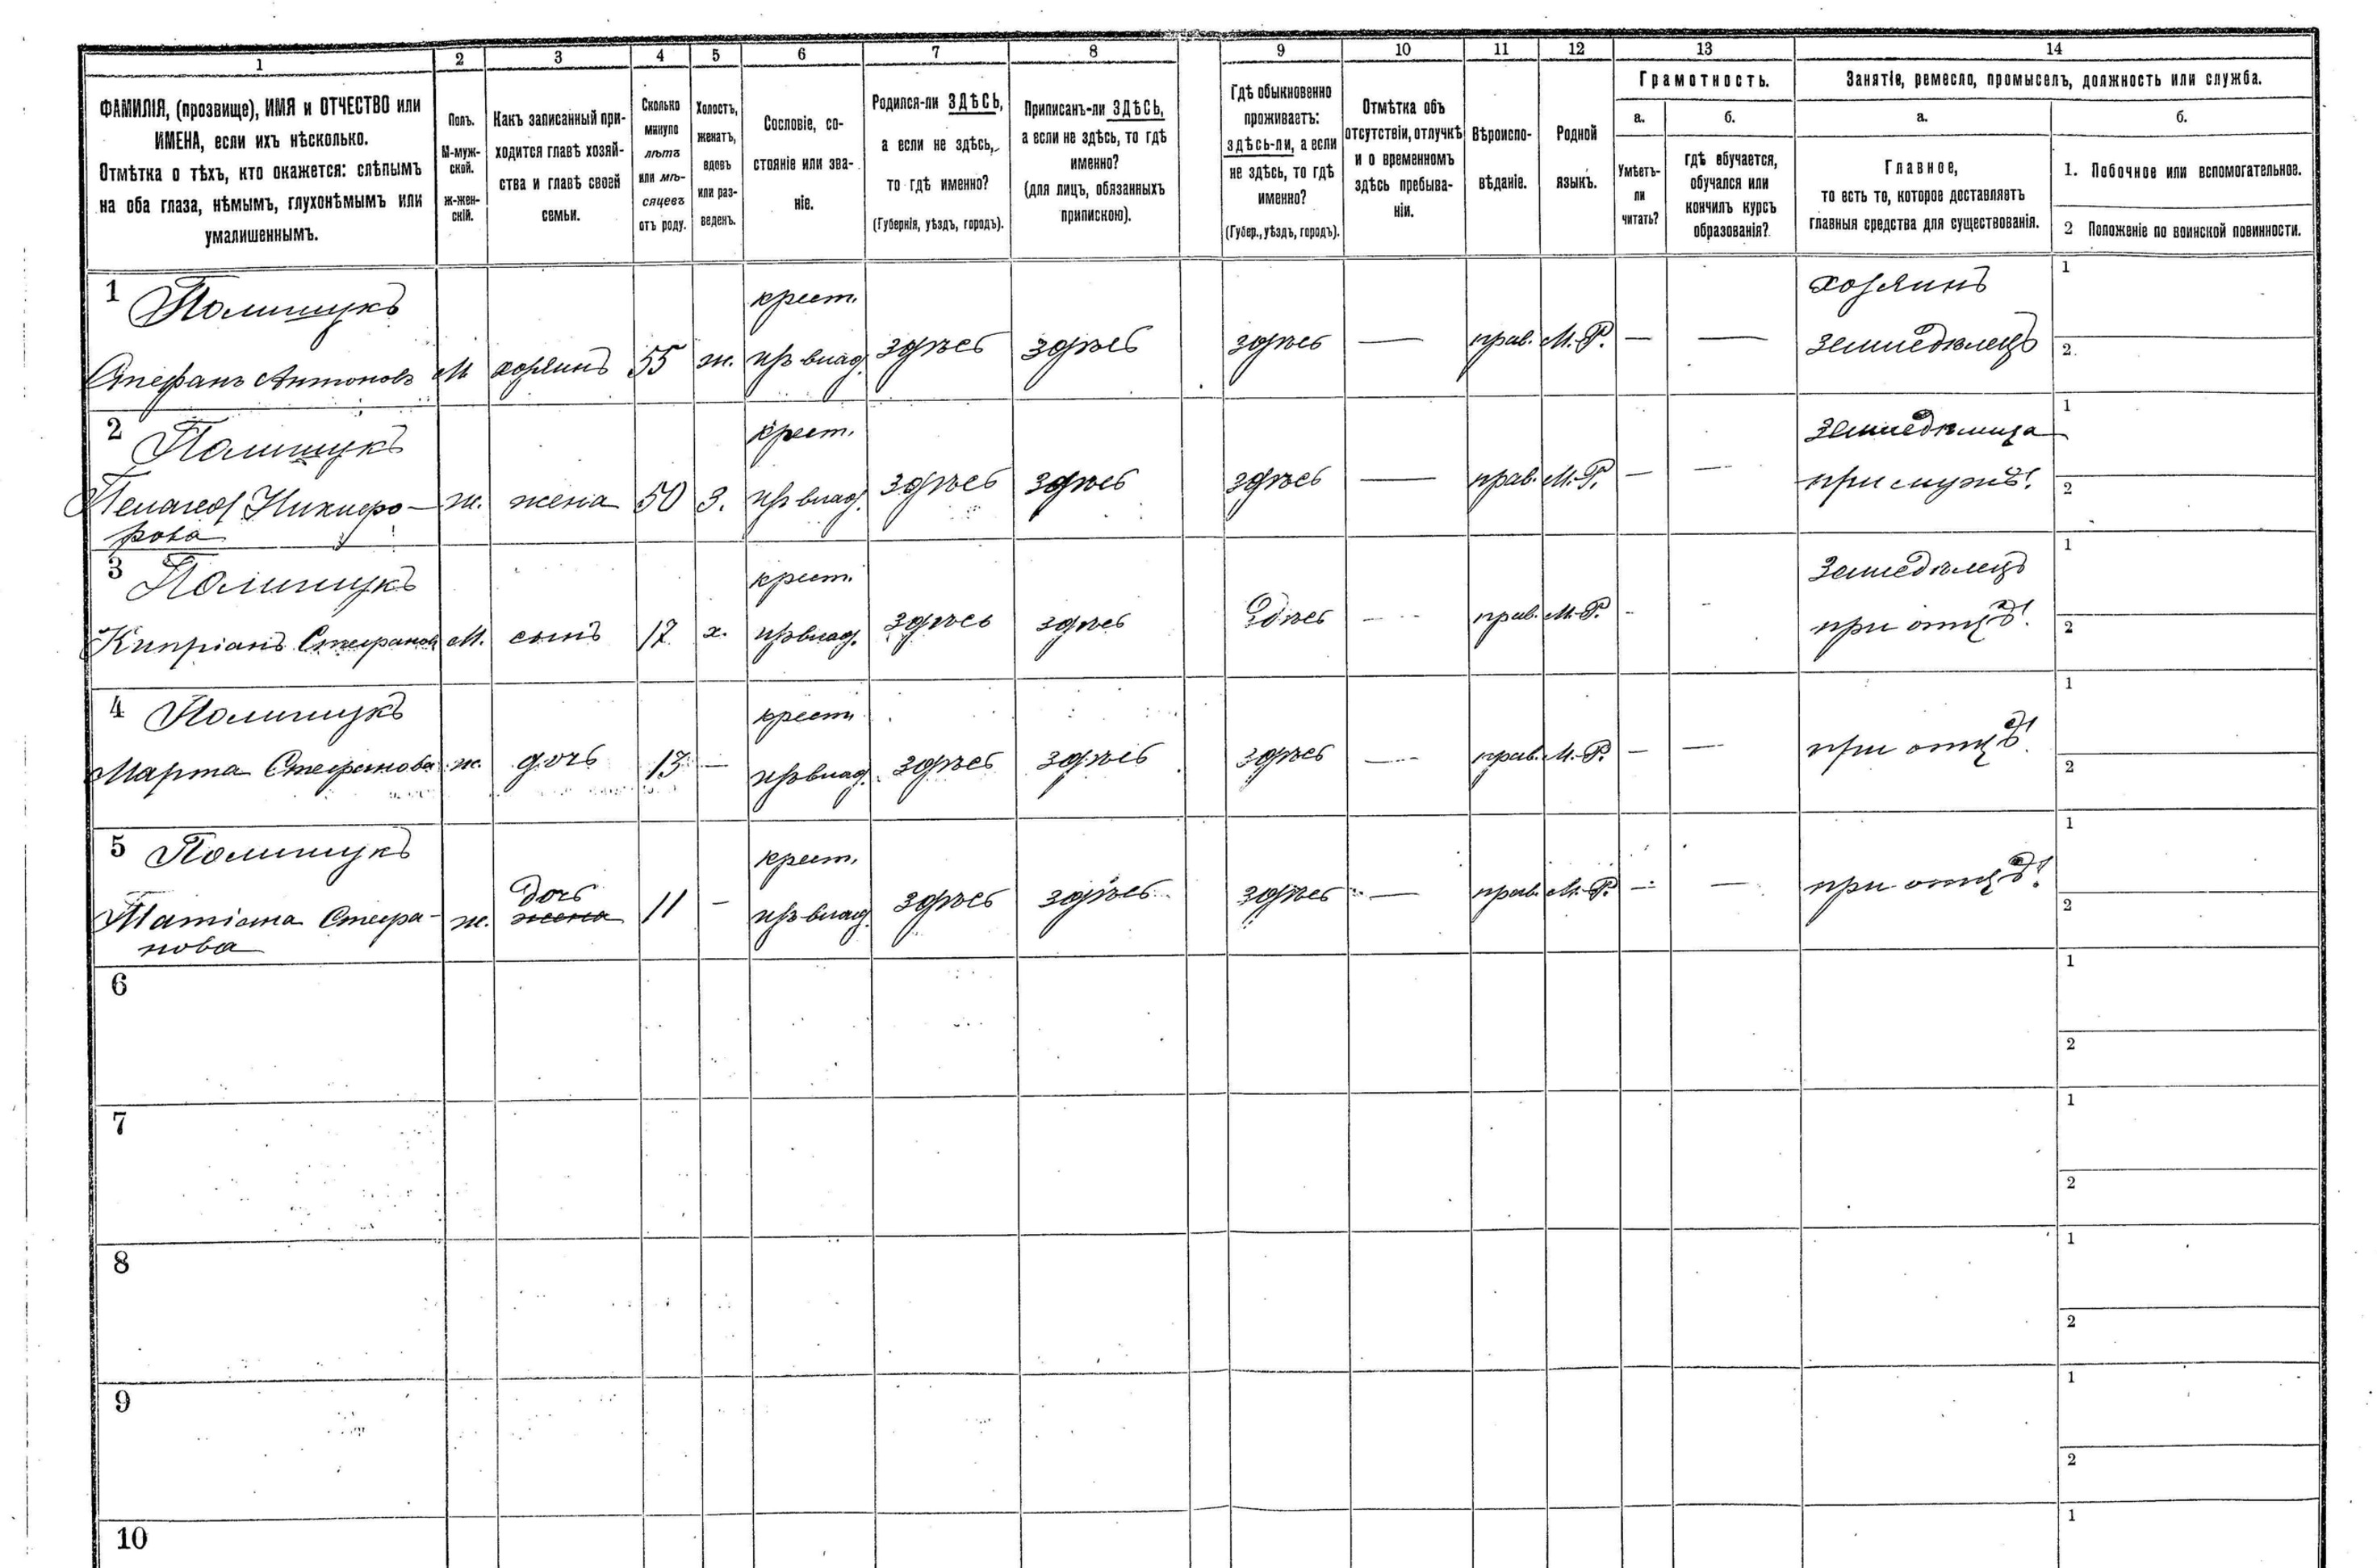 1 2 3 4 5 6 7 8 9 10 11 12 13 14
ФАМИЛІЯ, (прозвище), ИМЯ и ОТЧЕСТВО или
ИМЕНА, если ихъ нѣсколько.
Отмѣтка о тѣхъ, кто окажется: слѣпымъ
на оба глаза, нѣмымъ, глухонѣмымъ или
умалишеннымъ.
Полъ.
М-муж-
ской.
ж-жен-
скій.
Какъ записанный при-
ходится главѣ хозяй-
ства и главѣ своей
семьи.
Сколько
минуло
лѣтъ
или мѣ-
сяцевъ
отъ роду.
Холостъ,
женатъ,
вдовъ
или раз-
веденъ.
Сословіе, со-
стояніе или зва-
ніе.
Родился-ли ЗДѢСЬ,
а если не здѣсь,
то гдѣ именно?
(Губернія, уѣздъ, городъ).
Приписанъ-ли ЗДѢСЬ,
а если не здѣсь, то гдѣ
именно?
(для лицъ, обязанныхъ
припискою).
Гдѣ обыкновенно
проживаетъ:
здѣсь-ли, а если
не здѣсь, то гдѣ
именно?
(Губер., уѣздъ, городъ).
Отмѣтка объ
отсутствіи, отлучкѣ
и о временномъ
здѣсь пребыва-
ніи.
Вѣроиспо-
вѣданіе.
Родной
языкъ.
Грамотность.
а.
Умѣетъ-
ли
читать?
б.
гдѣ обучается,
обучался или
кончилъ курсъ
образованія?
Занятіе, ремесло, промыселъ, должность или служба.
а.
Главное,
то есть то, которое доставляетъ
главныя средства для существованія.
б.
1. Побочное или вспомогательное.
2 Положеніе по воинской повинности.
1 Полищукъ крест. хозяинъ 1
Стефанъ Антоновъ М хозяинъ 55 ж. изъ влад. здѣсь здѣсь здѣсь — прав. М.-Р. — — земледѣлецъ 2.
2 Полищукъ крест. земледѣлица 1
Пелагея Никифо- ж. жена 50 З. изъ влад. здѣсь здѣсь здѣсь — прав. М.-Р. — — при мужѣ. 2
рова
3 Полищукъ крест. Земледѣлецъ 1
Кипріанъ Стефановъ М. сынъ 17 х. изъ влад. здѣсь здѣсь здѣсь — прав. М.-Р. - - при отцѣ. 2
4 Полищукъ крест. 1
Марта Стефанова ж. дочь 13 — изъ влад. здѣсь здѣсь здѣсь — прав. М.-Р. — — при отцѣ. 2
5 Полищукъ крест. 1
дочь
Татіана Стефа- ж. жена 11 — изъ влад. здѣсь здѣсь здѣсь — прав. М.-Р. — — при отцѣ. 2
нова
6 1
2
7 1
2
8 1
2
9 1
2
10 1